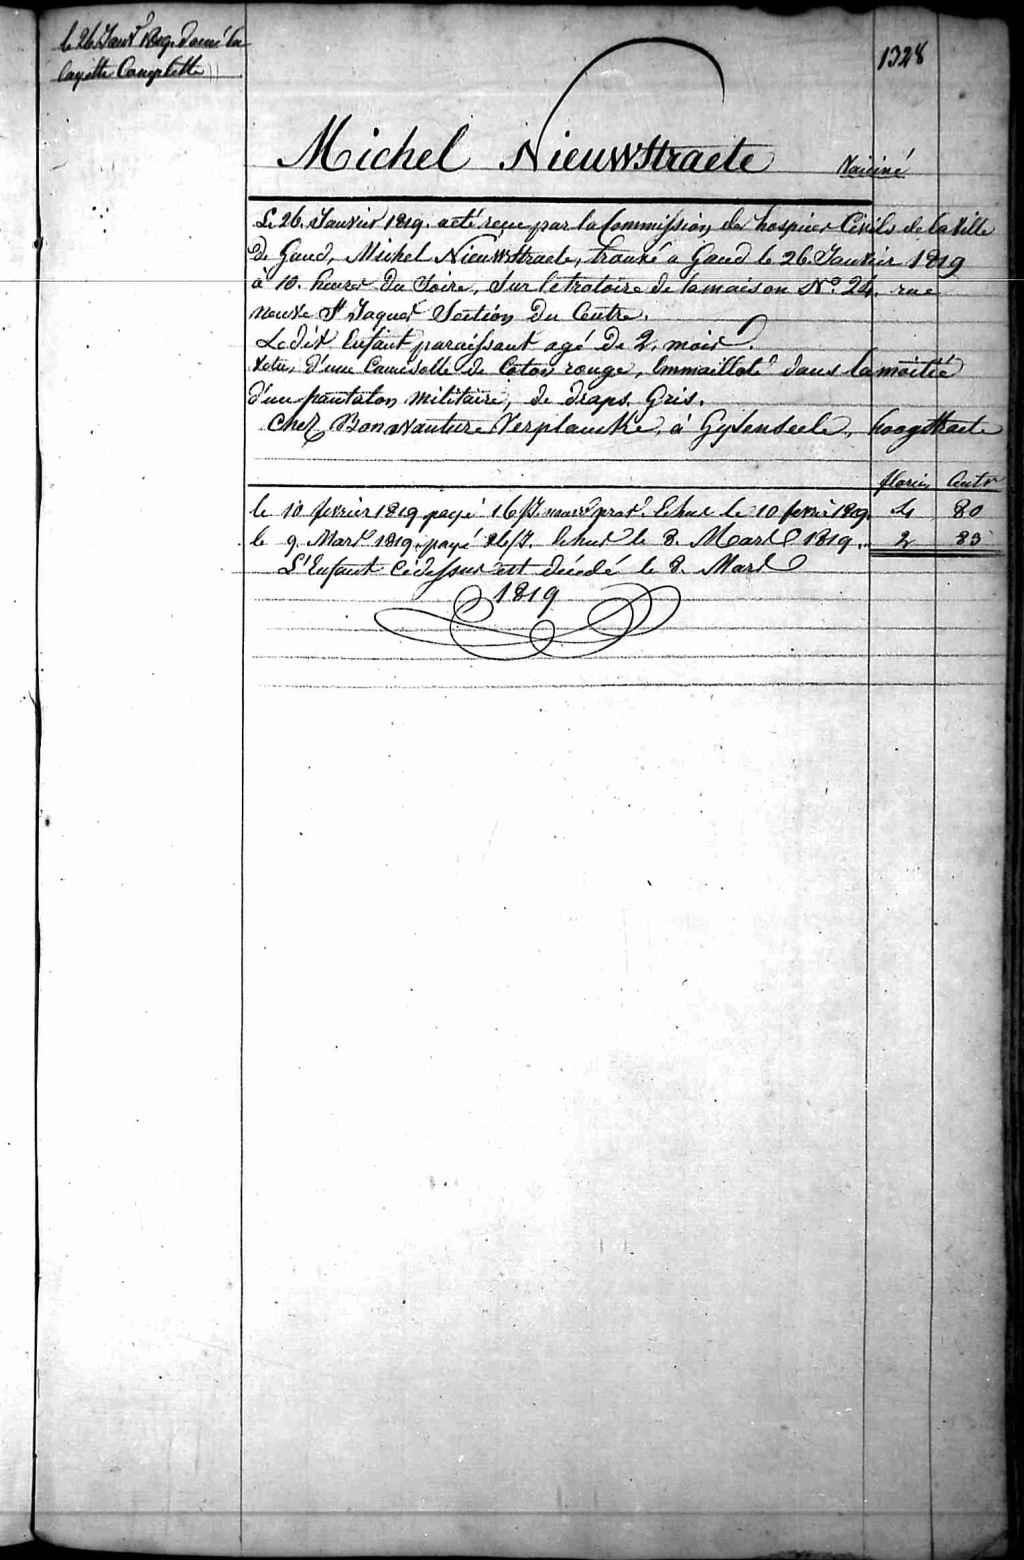 le 26 Janvr 1819 donné la
layette Complette
1328
Michel Nieuwstraete
Vaiciné
Le 26. Janvier 1819. a eté reçu par la Commission des hospices Civils de la Ville
de Gand, Michel Nieuwstraete, trouvé a Gand le 26 Janvier 1819
à 10. heures du Soire, Sur le trotoire de la maison No. 24. rue
neuve St Jaques Section du Centre.
Ledit Enfant paraissant agé de 2. mois.
Vetu, d'une Camisolle de Coton rouge, Emmailloté dans la moitié
d'un pantalon militaire, de draps. Gris.
Chez Bonavanture Verplancke, à Gysenseele, hoogstraete
florins Cents
le 10 fevrier 1819 payé 16/J. Echus le 10 fevrier 1819. 4 80
le 9. Mars 1819. payé 26/J. Echus le 8. Mars 1819. 2 83
L'Enfant Cidessus est décédé le 8. Mars
1819